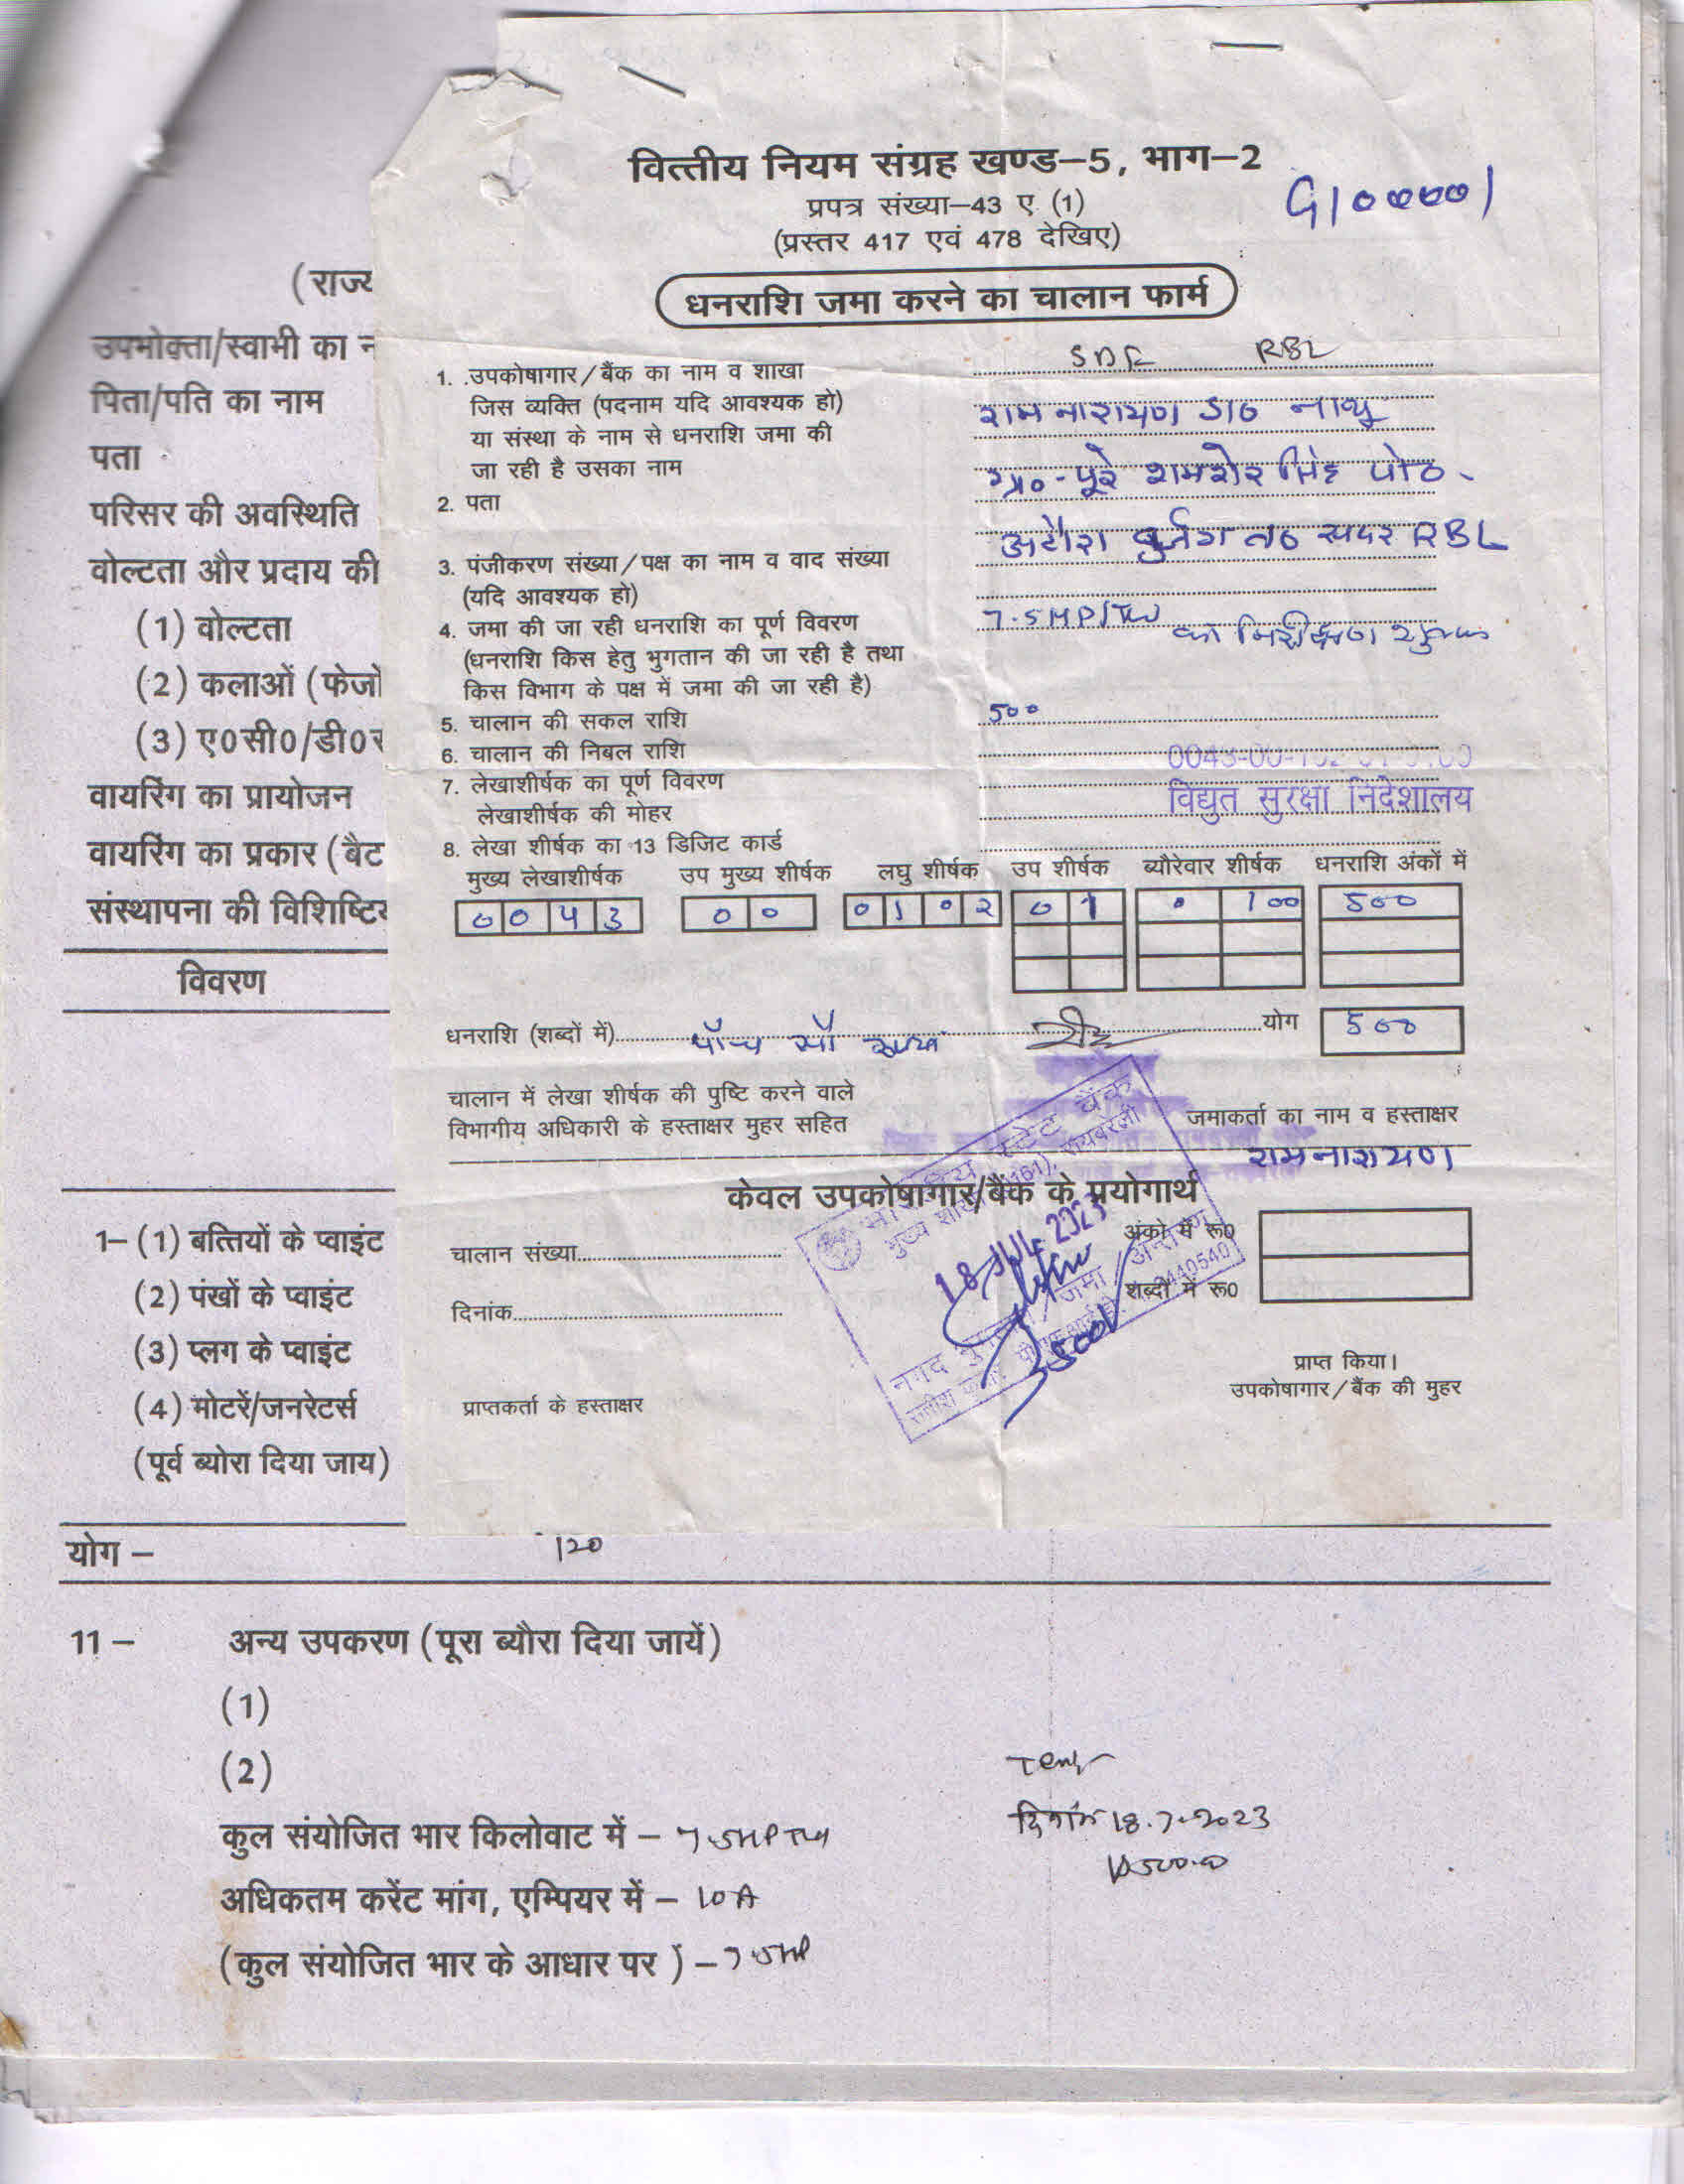 वित्तीय नियम संग्रह खण्ड–5, भाग–2
प्रपत्र संख्या–43 ए (1)
(प्रस्तर 417 एवं 478 देखिए)
धनराशि जमा करने का चालान फार्म
1. उपकोषागार/बैंक का नाम व शाखा RBL
जिस व्यक्ति (पदनाम यदि आवश्यक हो) राम नारायण S/o नाथू
या संस्था के नाम से धनराशि जमा की
जा रही है उसका नाम ग्रा०- पूरे शमशेर सिंह पो०-
2. पता
अटौरा बुजुर्ग त० सदर RBL
3. पंजीकरण संख्या/पक्ष का नाम व वाद संख्या
(यदि आवश्यक हो)
4. जमा की जा रही धनराशि का पूर्ण विवरण 7.5HP/TW का निरीक्षण शुल्क
(धनराशि किस हेतु भुगतान की जा रही है तथा
किस विभाग के पक्ष में जमा की जा रही है)
5. चालान की सकल राशि 500
6. चालान की निबल राशि
7. लेखाशीर्षक का पूर्ण विवरण
लेखाशीर्षक की मोहर विद्युत सुरक्षा निदेशालय
8. लेखा शीर्षक का 13 डिजिट कार्ड
मुख्य लेखाशीर्षक उप मुख्य शीर्षक लघु शीर्षक उप शीर्षक ब्यौरेवार शीर्षक धनराशि अंकों में
0043 00 0102 01 0 100 500
धनराशि (शब्दों में) पाँच सौ रुपया योग 500
चालान में लेखा शीर्षक की पुष्टि करने वाले
विभागीय अधिकारी के हस्ताक्षर मुहर सहित
जमाकर्ता का नाम व हस्ताक्षर
रामनारायण
केवल उपकोषागार/बैंक के प्रयोगार्थ
चालान संख्या
अंको में रू0
दिनांक
शब्दों में रू0
प्राप्त किया।
उपकोषागार/बैंक की मुहर
प्राप्तकर्ता के हस्ताक्षर
स्टेट बैंक
18 JUL 2023
(राज्य
उपभोक्ता/स्वामी का
पिता/पति का नाम
पता
परिसर की अवस्थिति
वोल्टता और प्रदाय की
(1) वोल्टता
(2) कलाओं (फेजों
(3) ए0सी0/डी0
वायरिंग का प्रायोजन
वायरिंग का प्रकार (बैट
संस्थापना की
विवरण
1– (1) बत्तियों के प्वाइंट
(2) पंखों के प्वाइंट
(3) प्लग के प्वाइंट
(4) मोटरें/जनरेटर्स
(पूर्व ब्योरा दिया जाय)
योग – 120
11 – अन्य उपकरण (पूरा ब्यौरा दिया जायें)
(1)
(2)
कुल संयोजित भार किलोवाट में – 7.5HP TW
दिनांक 18.7.2023
अधिकतम करेंट मांग, एम्पियर में – 10A
(कुल संयोजित भार के आधार पर ) – 7.5HP